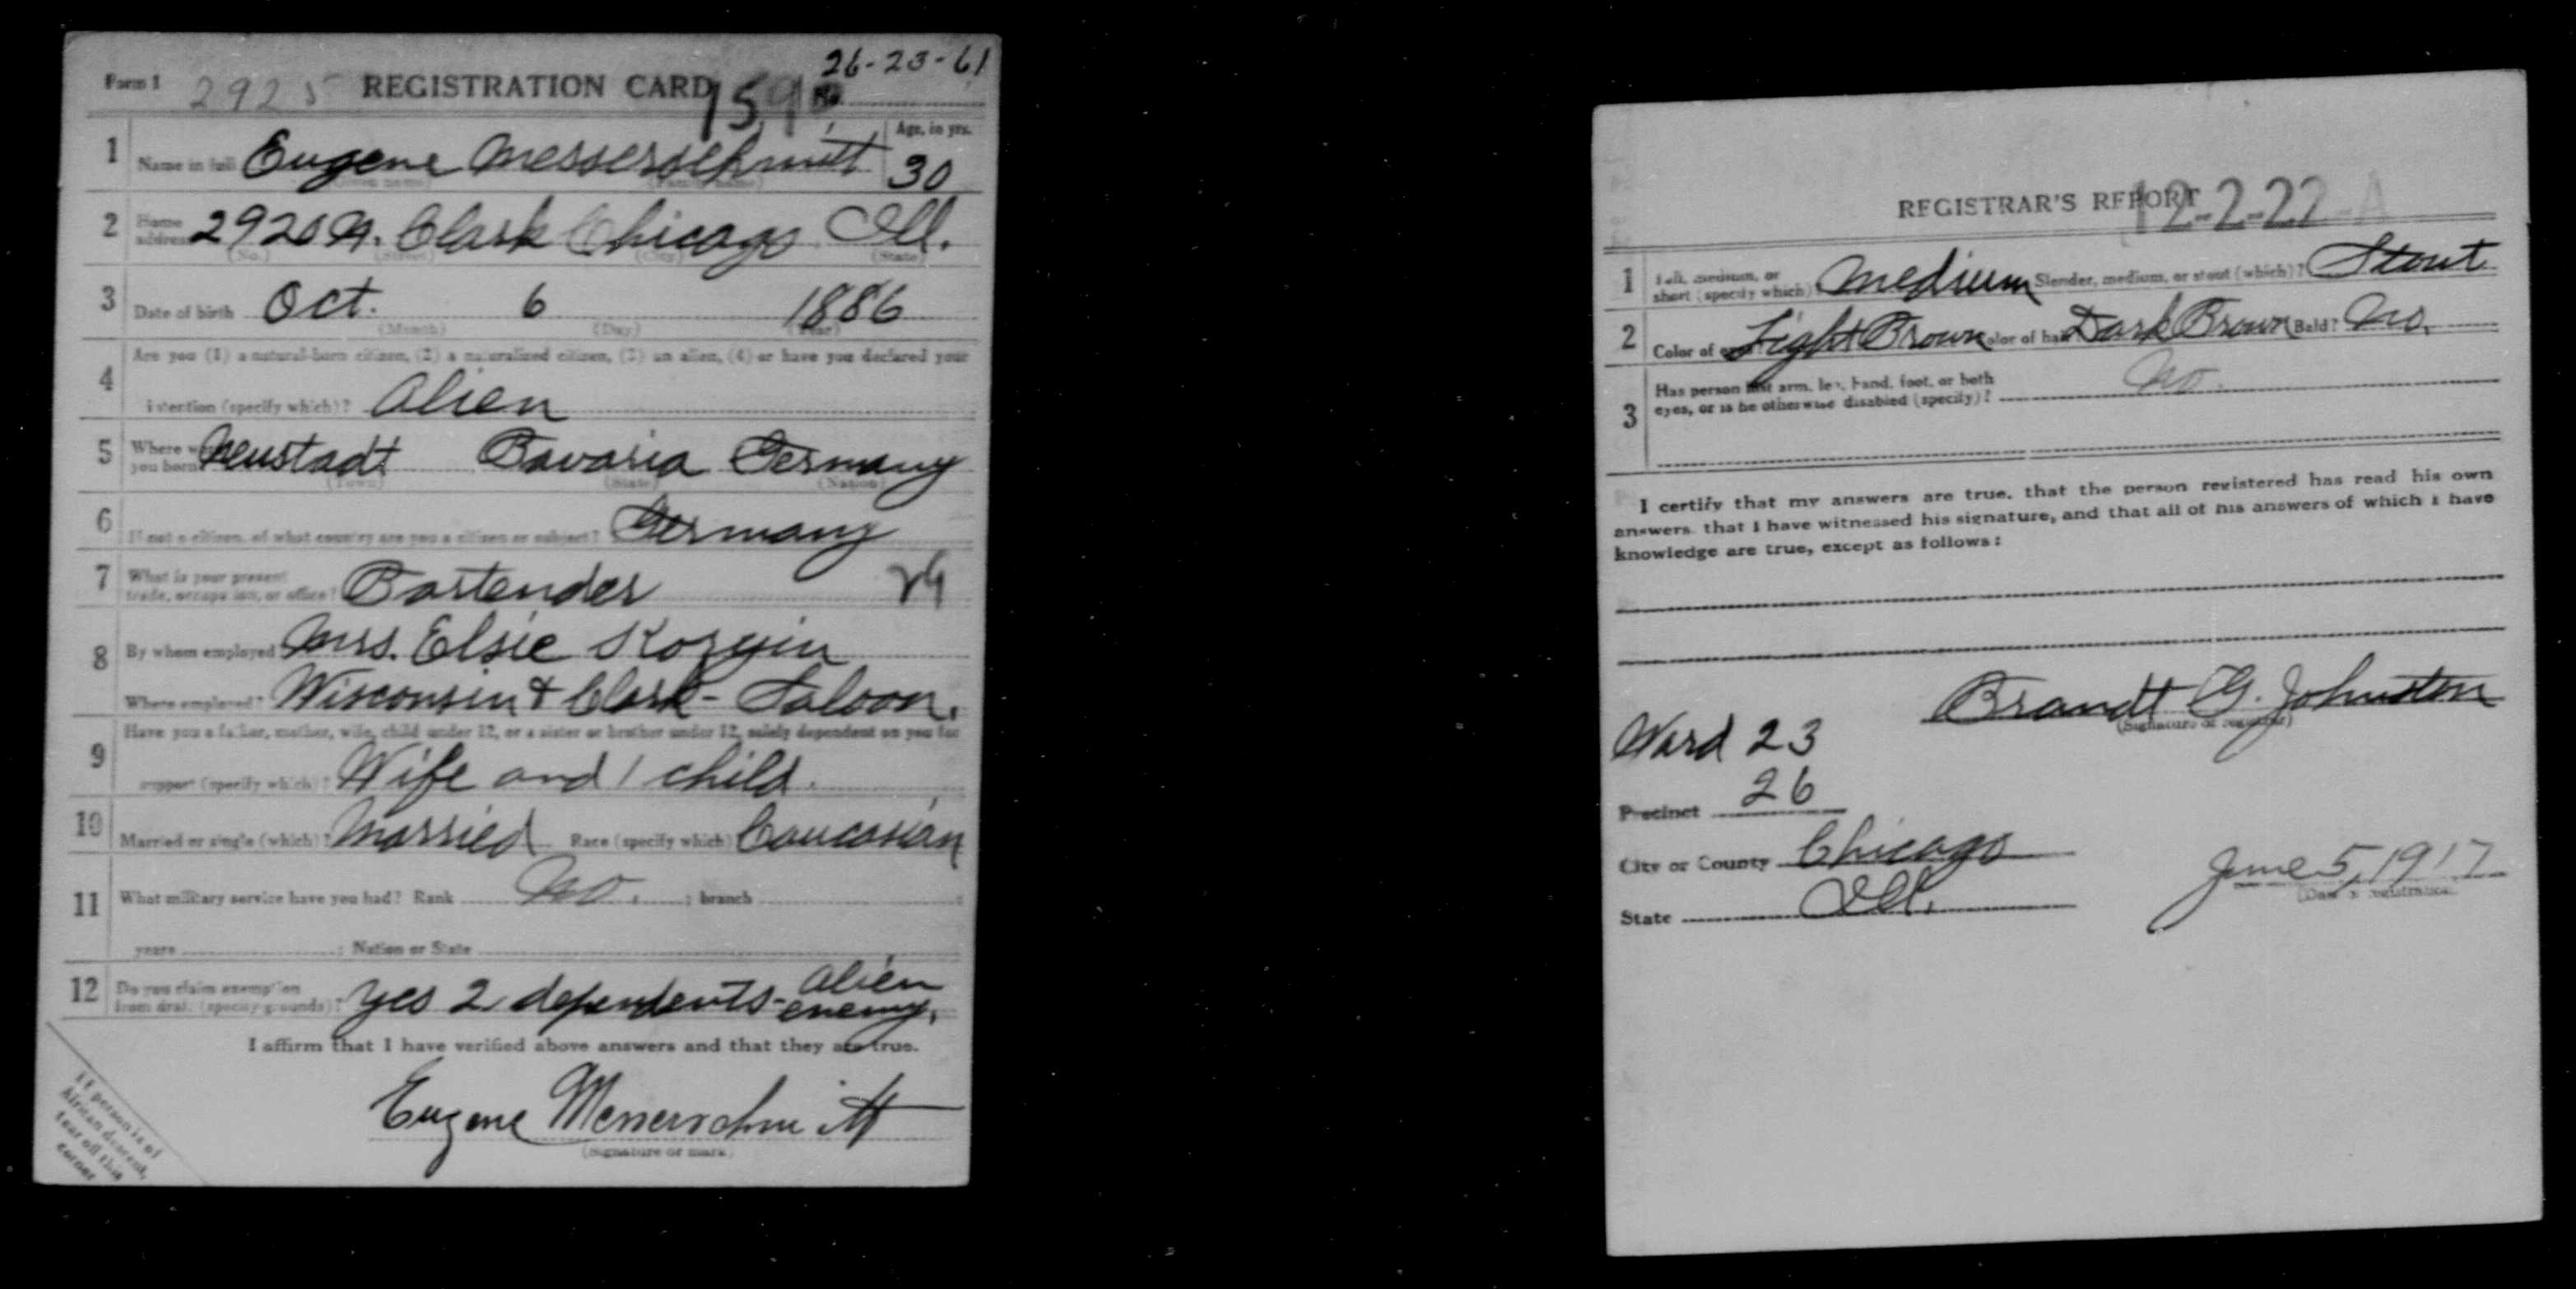 26-23-61
Form 1 2925 REGISTRATION CARD No.
1 Name in full Eugene Messerschmitt Age, in yrs. 30
(Given name) (Family name)
2 Home address 2920 N. Clark Chicago Ill.
(No.) (Street) (City) (State)
3 Date of birth Oct. 6 1886
(Month) (Day) (Year)
4 Are you (1) a natural-born citizen, (2) a naturalized citizen, (3) an alien, (4) or have you declared your
intention (specify which)? Alien
5 Where were you born? Neustadt Bavaria Germany
(Town) (State) (Nation)
6 If not a citizen, of what country are you a citizen or subject? Germany
7 What is your present
trade, occupation, or office? Bartender
8 By whom employed Mrs. Elsie
Where employed? Wisconsin & Clark - Saloon.
9 Have you a father, mother, wife, child under 12, or a sister or brother under 12, solely dependent on you for
support (specify which)? Wife and 1 child.
10 Married or single (which)? Married Race (specify which) Caucasian
11 What military service have you had? Rank No. ; branch
years ; Nation or State
12 Do you claim exemption
from draft (specify grounds)? Yes 2 dependents - Alien enemy.
I affirm that I have verified above answers and that they are true.
Eugene Messerschmitt
(Signature or mark)
If person is of
African descent,
tear off this
corner
REGISTRAR'S REPORT
12-2-22-A
1 Tall, medium, or
short (specify which)? Medium Slender, medium, or stout (which)? Stout
2 Color of eyes? Light Brown Color of hair? Dark Brown Bald? No.
3 Has person lost arm, leg, hand, foot, or both
eyes, or is he otherwise disabled (specify)? No.
I certify that my answers are true, that the person registered has read his own
answers, that I have witnessed his signature, and that all of his answers of which I have
knowledge are true, except as follows:
Brandt G. Johnston
(Signature of registrar)
Ward 23
Precinct 26
City or County Chicago
State Ill.
June 5, 1917
(Date of registration)